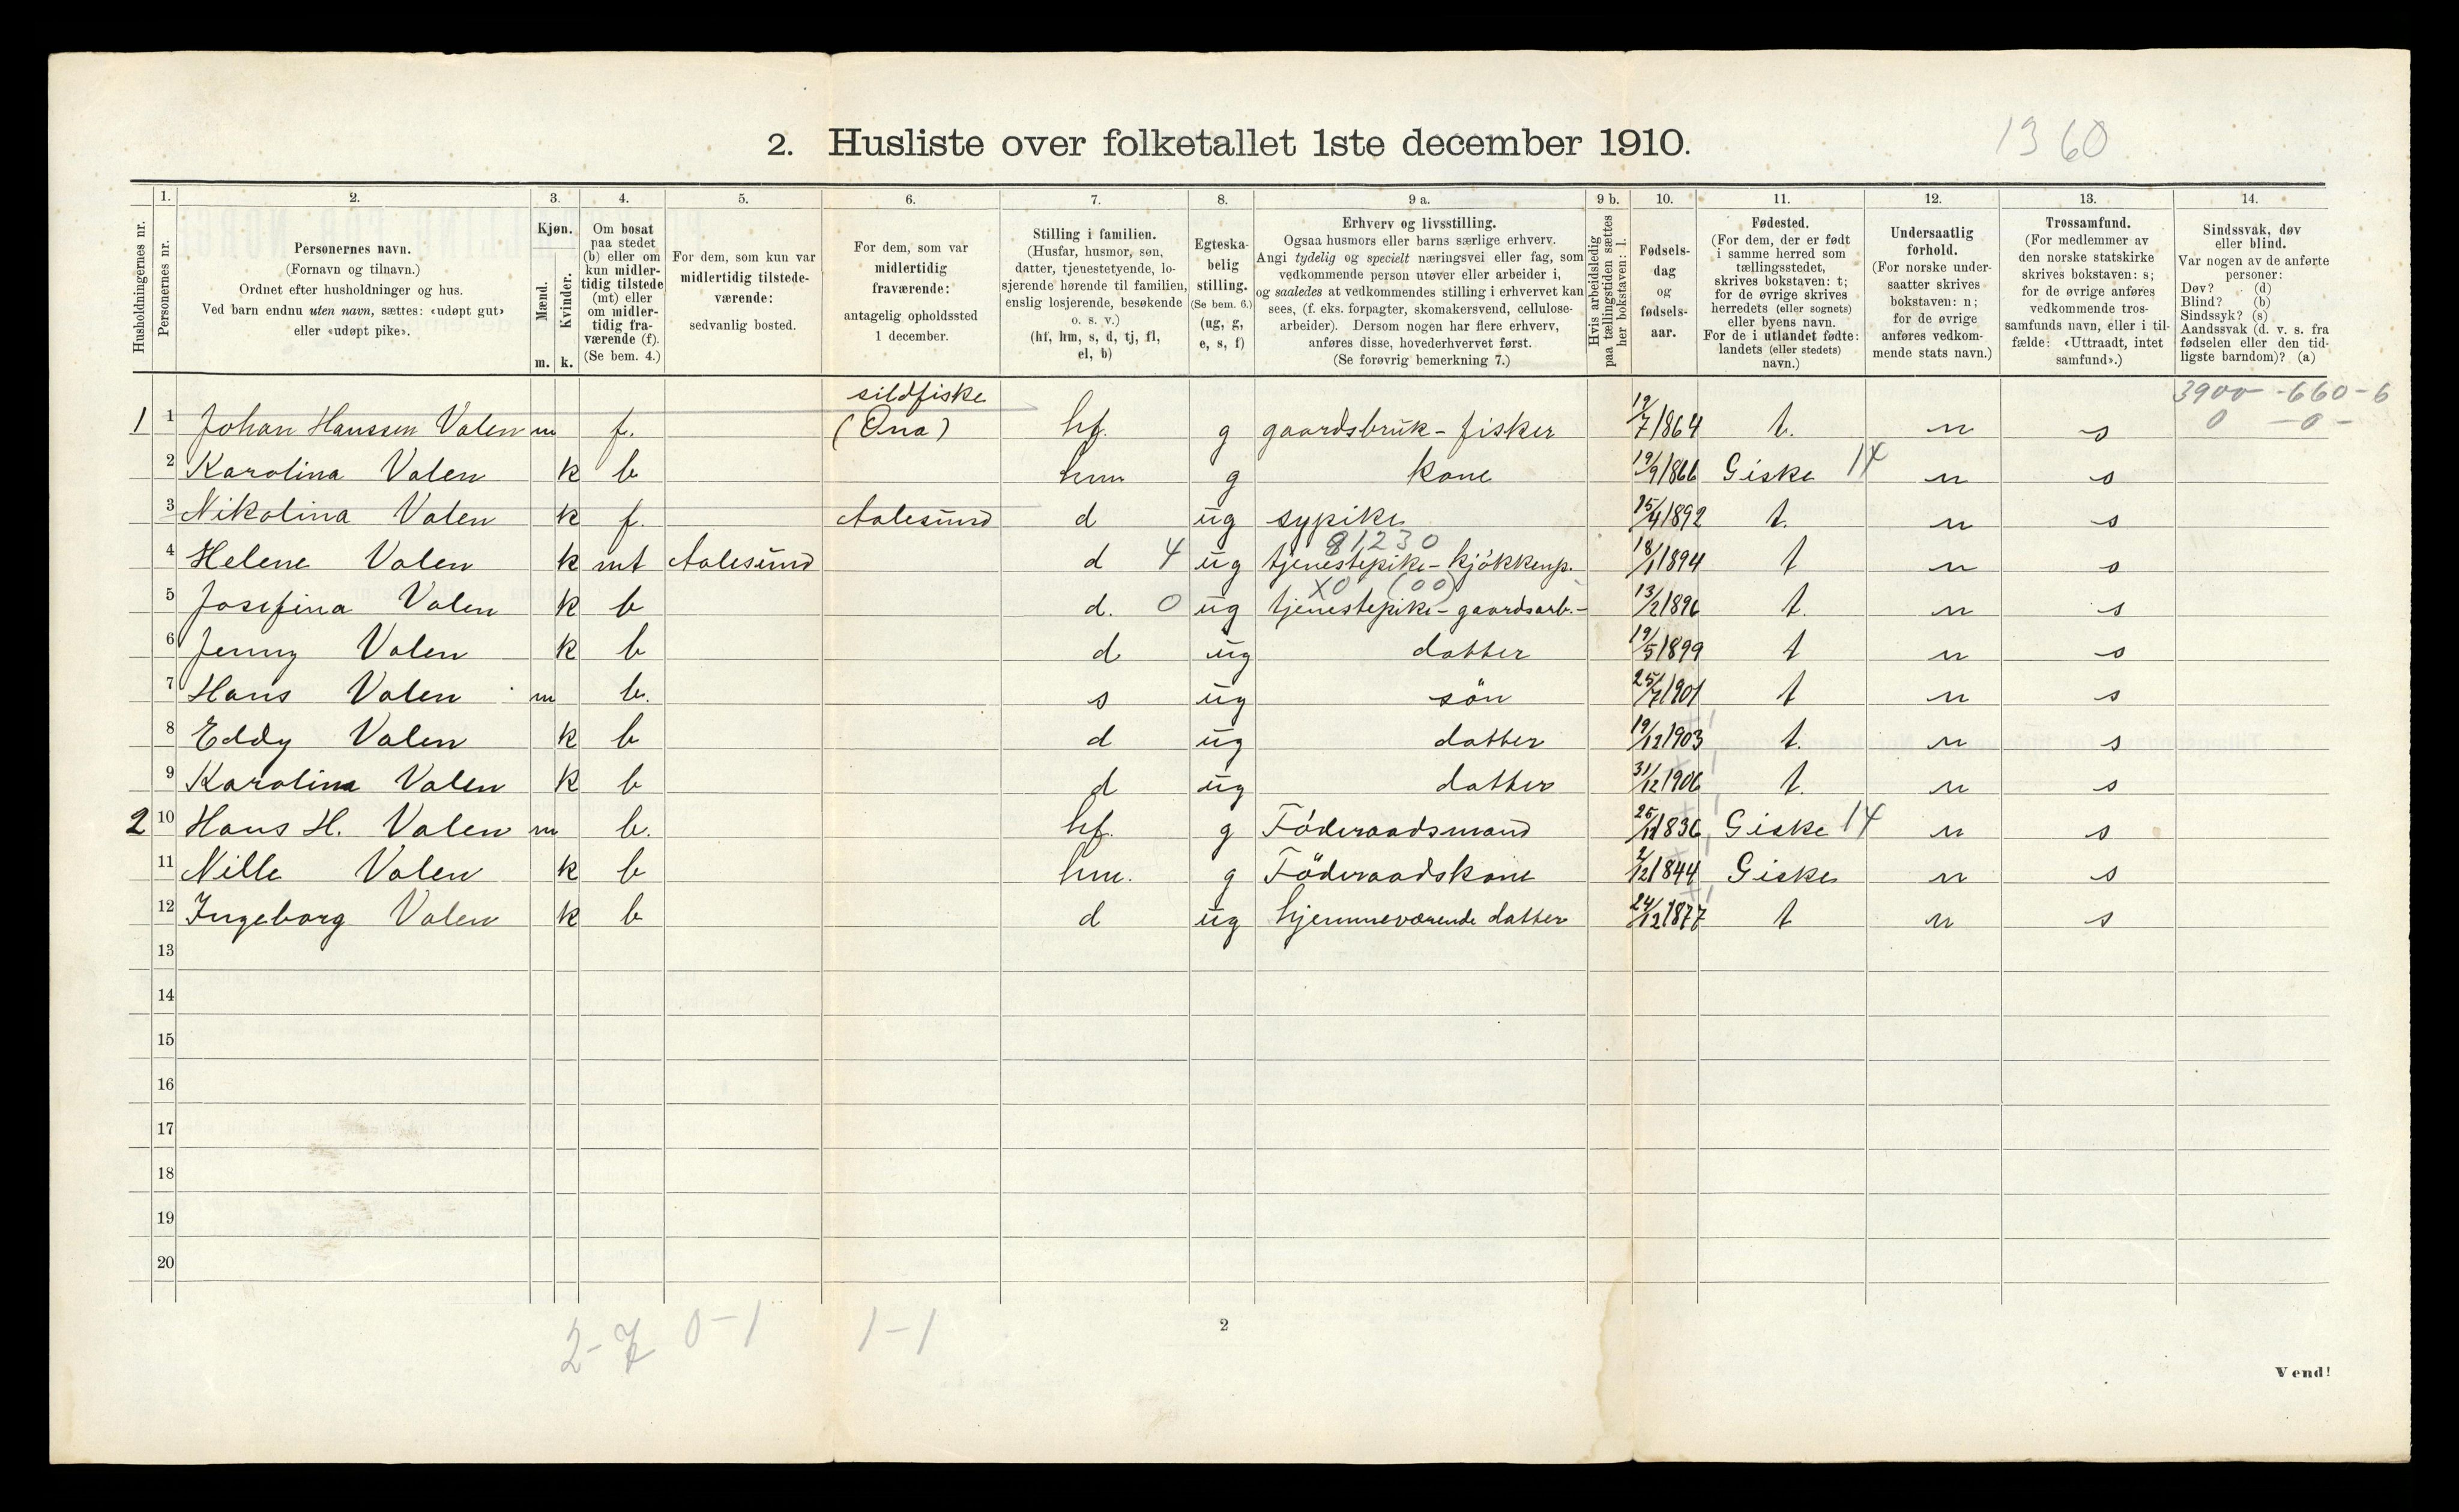 2. Husliste over folketallet 1ste december 1910.
1360
Husholdningernes nr.
1.
Personernes nr.
2.
Personernes navn.
(Fornavn og tilnavn.)
Ordnet efter husholdninger og hus.
Ved barn endnu uten navn, sættes: «udøpt gut»
eller «udøpt pike».
3.
Kjøn.
Mænd.
m.
Kvinder.
k.
4.
Om bosat
paa stedet
(b) eller om
kun midler-
tidig tilstede
(mt) eller
om midler-
tidig fra-
værende (f).
(Se bem. 4.)
5.
For dem, som kun var
midlertidig tilstede-
værende:
sedvanlig bosted.
6.
For dem, som var
midlertidig
fraværende:
antagelig opholdssted
1 december.
7.
Stilling i familien.
(Husfar, husmor, søn,
datter, tjenestetyende, lo-
sjerende hørende til familien,
enslig losjerende, besøkende
o. s. v.)
(hf, hm, s, d, tj, fl,
el, b)
8.
Egteska-
belig
stilling.
(Se bem. 6.)
(ug, g,
e, s, f)
9 a.
Erhverv og livsstilling.
Ogsaa husmors eller barns særlige erhverv.
Angi tydelig og specielt næringsvei eller fag, som
vedkommende person utøver eller arbeider i,
og saaledes at vedkommendes stilling i erhvervet kan
sees, (f. eks. forpagter, skomakersvend, cellulose-
arbeider). Dersom nogen har flere erhverv,
anføres disse, hovederhvervet først.
(Se forøvrig bemerkning 7.)
9 b.
Hvis arbeidsledig
paa tællingstiden sættes
her bokstaven: l.
10.
Fødsels-
dag
og
fødsels-
aar.
11.
Fødested.
(For dem, der er født
i samme herred som
tællingsstedet,
skrives bokstaven: t;
for de øvrige skrives
herredets (eller sognets)
eller byens navn.
For de i utlandet fødte:
landets (eller stedets)
navn.)
12.
Undersaatlig
forhold.
(For norske under-
saatter skrives
bokstaven: n;
for de øvrige
anføres vedkom-
mende stats navn.)
13.
Trossamfund.
(For medlemmer av
den norske statskirke
skrives bokstaven: s;
for de øvrige anføres
vedkommende tros-
samfunds navn, eller i til-
fælde: «Uttraadt, intet
samfund».)
14.
Sindssvak, døv
eller blind.
Var nogen av de anførte
personer:
Døv? (d)
Blind? (b)
Sindssyk? (s)
Aandssvak (d. v. s. fra
fødselen eller den tid-
ligste barndom)? (a)
3900 - 660 - 6
0 - 0 -
sildfiske
1 1 Johan Hanssen Valen m f. (Ona) hf. g gaardsbruk - fisker 19/7 1864 t. n s
2 Karolina Valen k b hm g kone 19/9 1866 Giske 14 n s
3 Nikolina Valen k f. Aalesund d ug sypike 15/4 1892 t. n s
91230
4 Helene Valen k mt Aalesund d 4 ug tjenestepike - kjökkenp. 18/1 1894 t n s
X0 (00)
5 Josefina Valen k b d. 0 ug tjenestepike - gaardsarb. - 13/2 1896 t. n s
6 Jenny Valen k b d ug datter 19/5 1899 t n s
7 Hans Valen m b. s ug sön 25/7 1901 t n s
8 Eddy Valen k b d ug datter 19/12 1903 t. n s
9 Karolina Valen k b d ug datter 31/12 1906 t. n s
2 10 Hans H. Valen m b. hf. g Föderaadsmand 1836 Giske 14 n s
11 Nille Valen k b hm. g Föderaadskone 2/12 1844 Giske n s
12 Ingeborg Valen k b d ug hjemmeværende datter 24/12 1877 t n s
13
14
15
16
17
18
19
20
2-7 0-1 1-1
2
Vend!